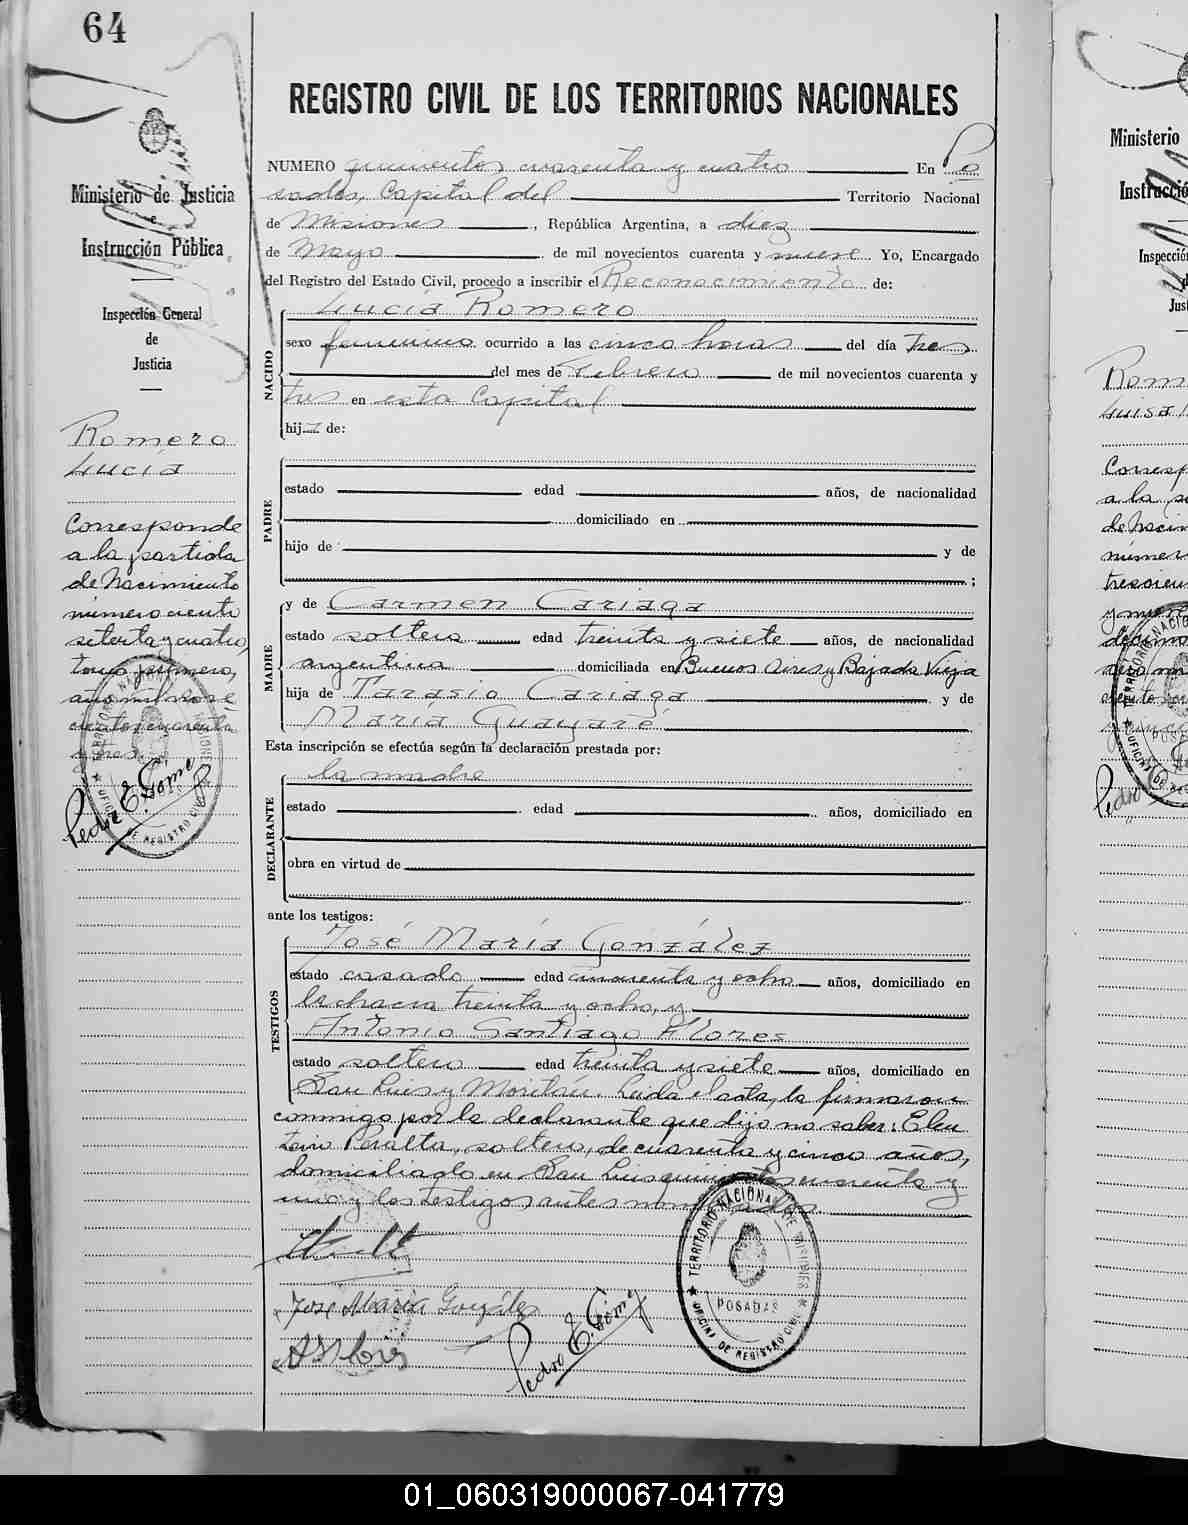 64
REGISTRO CIVIL DE LOS TERRITORIOS NACIONALES
Ministerio de Justicia
e
Instrucción Pública
Inspección General
de
Justicia
Romero
Lucía
Corresponde
a la partida
de Nacimiento
número ciento
setenta y cuatro,
tomo primero,
año mil nove
cientos cuarenta
y tres.
Pedro E. Gómez
NUMERO quinientos cuarenta y cuatro En Po
sadas, Capital del Territorio Nacional
de Misiones, República Argentina, a diez
de Mayo de mil novecientos cuarenta y nueve. Yo, Encargado
del Registro del Estado Civil, procedo a inscribir el Reconocimiento de:
NACIDO
Lucía Romero
sexo femenino ocurrido a las cinco horas del día tres
del mes de Febrero de mil novecientos cuarenta y
tres en esta Capital
hija de:
PADRE
estado edad años, de nacionalidad
domiciliado en
hijo de y de
;
MADRE
y de Carmen Cariaga
estado soltera edad treinta y siete años, de nacionalidad
argentina domiciliada en Buenos Aires y Bajada Vieja
hija de Tarasio Cariaga y de
María Guayaré
Esta inscripción se efectúa según la declaración prestada por:
DECLARANTE
la madre
estado edad años, domiciliado en
obra en virtud de
ante los testigos:
TESTIGOS
José María González
estado casado edad cincuenta y ocho años, domiciliado en
la chacra treinta y ocho, y
Antonio Santiago Flores
estado soltero edad treinta y siete años, domiciliado en
San Luis y Moritán. Leida el acta, la firmaron
conmigo por la declarante que dijo no saber: Eleu
terio Peralta, soltero, de cuarenta y cinco años,
domiciliado en San Luis quinientos cuarenta y
uno y los testigos antes nombrados
Jose Maria González
Pedro E. Gómez
TERRITORIO NACIONAL DE MISIONES
POSADAS
OFICINA DE REGISTRO CIVIL
01_060319000067-041779